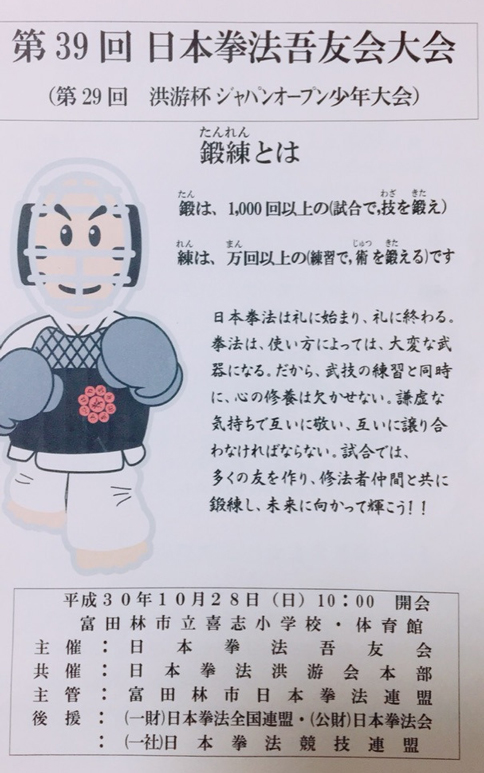 第39回 日本拳法吾友会大会
(第29回 洪游杯 ジャパンオープン少年大会)
たんれん
鍛練とは
たん わざ きた
鍛は、1,000回以上の(試合で,技を鍛え)
れん まん じゅつ きた
練は、万回以上の(練習で,術を鍛える)です
日本拳法は礼に始まり、礼に終わる。
拳法は、使い方によっては、大変な武
器になる。だから、武技の練習と同時
に、心の修養は欠かせない。謙虚な
気持ちで互いに敬い、互いに譲り合
わなければならない。試合では、
多くの友を作り、修法者仲間と共に
鍛練し、未来に向かって輝こう!!
平成30年10月28日(日)10:00 開会
富田林市立喜志小学校・体育館
主催:日本拳法吾友会
共催:日本拳法洪游会本部
主管:富田林市日本拳法連盟
後援:(一財)日本拳法全国連盟・(公財)日本拳法会
:(一社)日本拳法競技連盟